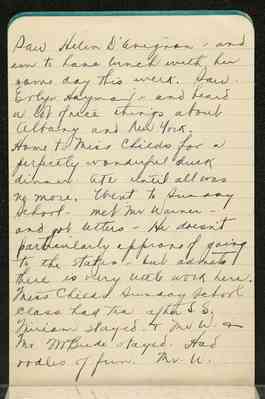 Saw Helen D'Evignan - and
am to have lunch with her
some day this week. Saw
Evlyn Hayman - and heard
a lot of nice things about
Albany and New York.
Home to Miss Childs for a
perfectly wonderful duck
dinner. Ate until all was
no more. Went to Sunday
School - met Mr Warner -
and got letters - He doesn't
particularly approve of going
to the states - but admits
there is very little work here.
Miss Childs Sunday School
class had tea after S.S.
stayed & Mr W. &
Mr. McBride stayed. Had
oodles of fun. Mr W.